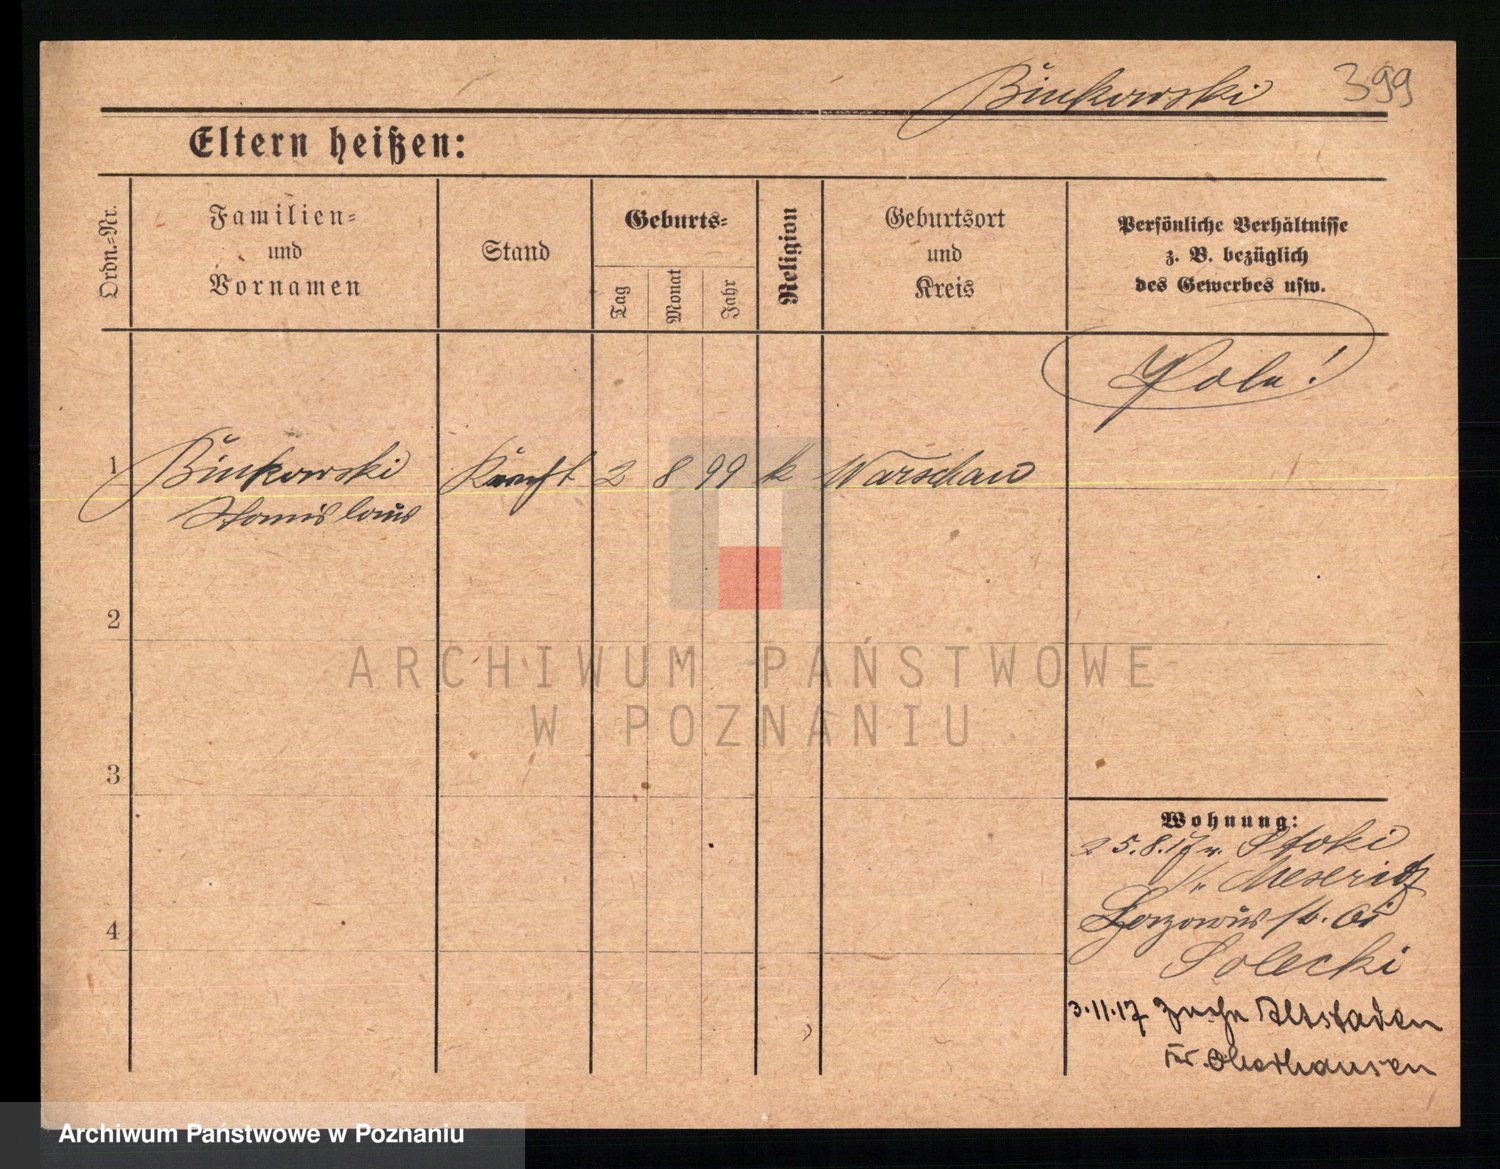 Binkowski 399
Eltern heißen:
Ordn.=Nr.
Familien=
und
Vornamen
Stand
Geburts=
Tag
Monat
Jahr
Religion
Geburtsort
und
Kreis
Persönliche Verhältnisse
z. B. bezüglich
des Gewerbes usw.
Pole!
1 Binkowski 2 8 99 k Warschau
Stanislaus
2
3
4
Wohnung:
25.8.17 Stoki
Meseritz
Solecki
3.11.17 Zeche Altstaden
Oberhausen
ARCHIWUM PAŃSTWOWE
W POZNANIU
Archiwum Państwowe w Poznaniu